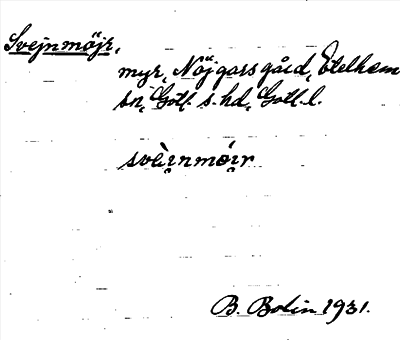 Svejnmöjr,
myr, Nöjgarsgård, Etelhem
sn, Gotl. s. hd, Gotl. l.
svèi̯nmói̯r
B. Bolin 1931.